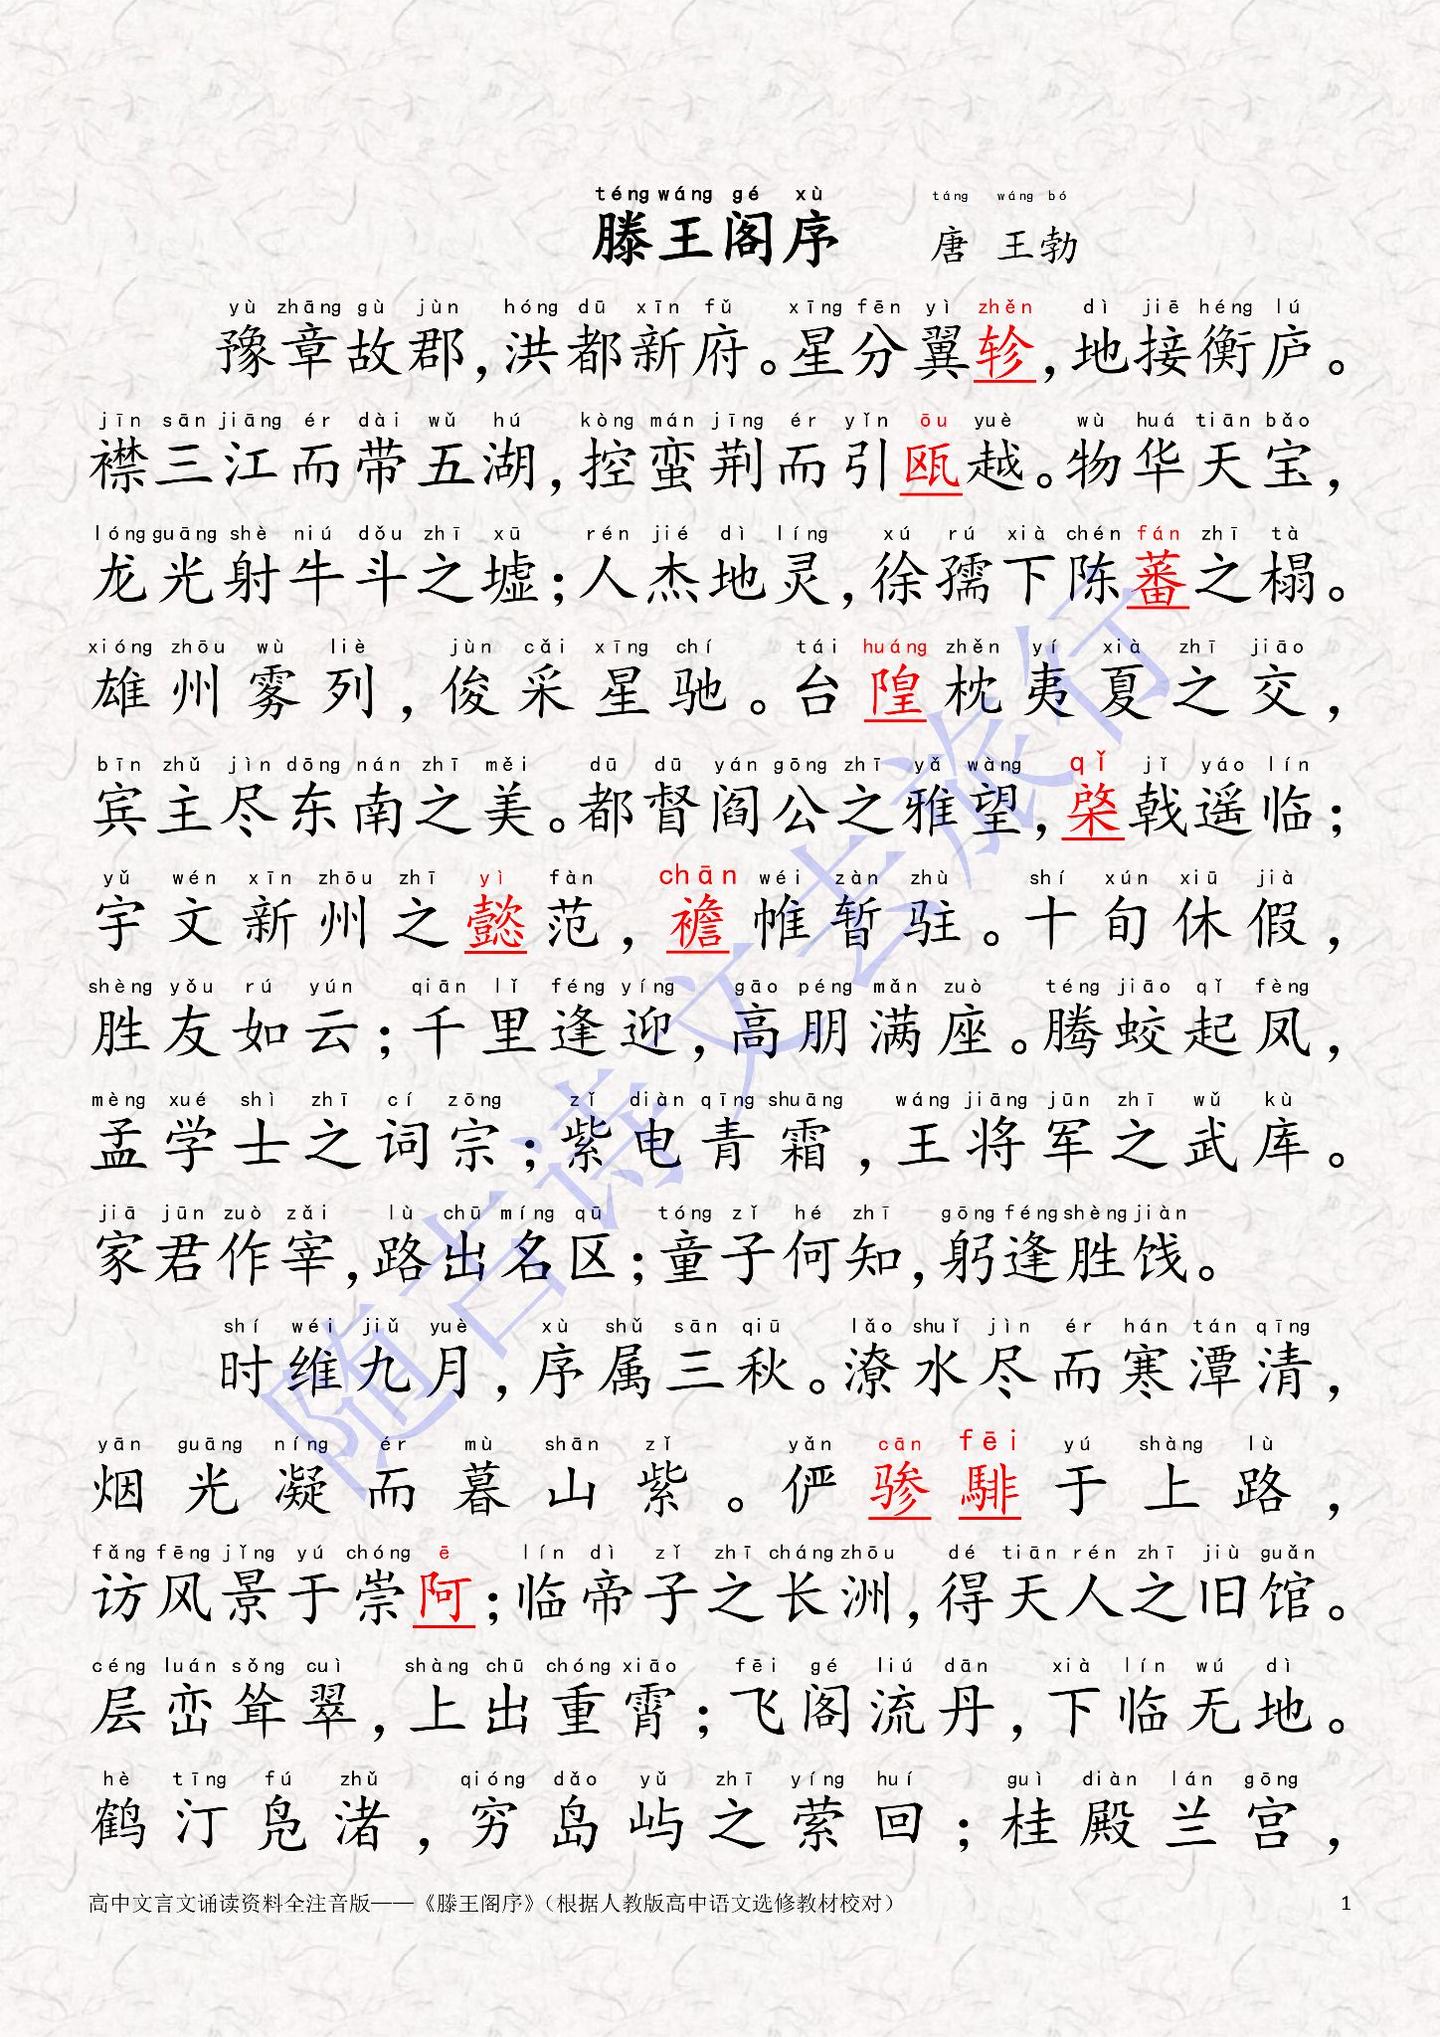 téng wáng gé xù táng wáng bó
滕王阁序 唐 王勃
yù zhāng gù jùn hóng dū xīn fǔ xīng fēn yì zhěn dì jiē héng lú
豫章故郡,洪都新府。星分翼轸,地接衡庐。
jīn sān jiāng ér dài wǔ hú kòng mán jīng ér yǐn ōu yuè wù huá tiān bǎo
襟三江而带五湖,控蛮荆而引瓯越。物华天宝,
lóng guāng shè niú dǒu zhī xū rén jié dì líng xú rú xià chén fán zhī tà
龙光射牛斗之墟;人杰地灵,徐孺下陈蕃之榻。
xióng zhōu wù liè jùn cǎi xīng chí tái huáng zhěn yí xià zhī jiāo
雄州雾列,俊采星驰。台隍枕夷夏之交,
bīn zhǔ jìn dōng nán zhī měi dū dū yán gōng zhī yǎ wàng qǐ jǐ yáo lín
宾主尽东南之美。都督阎公之雅望,棨戟遥临;
yǔ wén xīn zhōu zhī yì fàn chān wéi zàn zhù shí xún xiū jià
宇文新州之懿范,襜帷暂驻。十旬休假,
shèng yǒu rú yún qiān lǐ féng yíng gāo péng mǎn zuò téng jiāo qǐ fèng
胜友如云;千里逢迎,高朋满座。腾蛟起凤,
mèng xué shì zhī cí zōng zǐ diàn qīng shuāng wáng jiāng jūn zhī wǔ kù
孟学士之词宗;紫电青霜,王将军之武库。
jiā jūn zuò zǎi lù chū míng qū tóng zǐ hé zhī gōng féng shèng jiàn
家君作宰,路出名区;童子何知,躬逢胜饯。
shí wéi jiǔ yuè xù shǔ sān qiū lǎo shuǐ jìn ér hán tán qīng
时维九月,序属三秋。潦水尽而寒潭清,
yān guāng níng ér mù shān zǐ yǎn cān fēi yú shàng lù
烟光凝而暮山紫。俨骖騑于上路,
fǎng fēng jǐng yú chóng ē lín dì zǐ zhī cháng zhōu dé tiān rén zhī jiù guǎn
访风景于崇阿;临帝子之长洲,得天人之旧馆。
céng luán sǒng cuì shàng chū chóng xiāo fēi gé liú dān xià lín wú dì
层峦耸翠,上出重霄;飞阁流丹,下临无地。
hè tīng fú zhǔ qióng dǎo yǔ zhī yíng huí guì diàn lán gōng
鹤汀凫渚,穷岛屿之萦回;桂殿兰宫,
随古诗文去旅行
高中文言文诵读资料全注音版——《滕王阁序》(根据人教版高中语文选修教材校对) 1